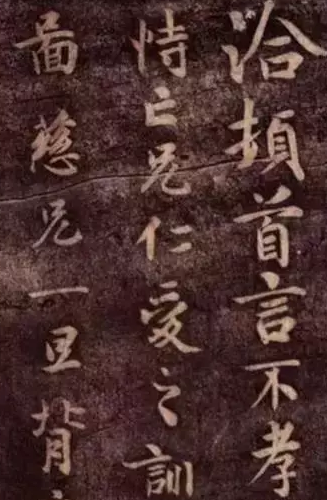 洽頓首言不孝
恃亡兄仁愛之訓
啚慈兄一旦背